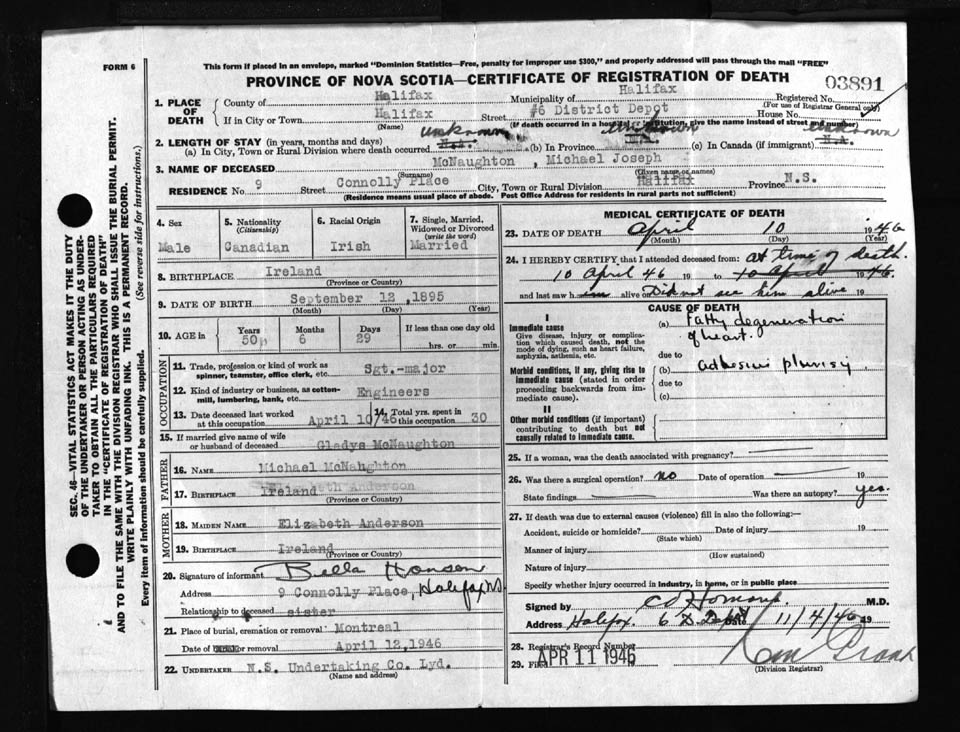 FORM 6
This form if placed in an envelope, marked "Dominion Statistics—Free, penalty for improper use $300," and properly addressed will pass through the mail "FREE"
PROVINCE OF NOVA SCOTIA—CERTIFICATE OF REGISTRATION OF DEATH
03891
1. PLACE OF DEATH
County of Halifax Municipality of Halifax Registered No.
(For use of Registrar General only)
If in City or Town Halifax Street #6 District Depot House No.
(Name) (If death occurred in a hospital or institution, give the name instead of street and number)
unknown unknown unknown
2. LENGTH OF STAY (in years, months and days)
(a) In City, Town or Rural Division where death occurred (b) In Province N.A. (c) In Canada (if immigrant) N.A.
3. NAME OF DECEASED McNaughton, Michael Joseph
(Surname) (Given name or names)
RESIDENCE No. 9 Street Connolly Place City, Town or Rural Division Halifax Province N.S.
(Residence means usual place of abode. Post Office Address for residents in rural parts not sufficient)
4. Sex
Male
5. Nationality
(Citizenship)
Canadian
6. Racial Origin
Irish
7. Single, Married, Widowed or Divorced
(write the word)
Married
8. BIRTHPLACE Ireland
(Province or Country)
9. DATE OF BIRTH September 12, 1895
(Month) (Day) (Year)
10. AGE in Years 50 Months 6 Days 29 If less than one day old hrs. or min.
OCCUPATION
11. Trade, profession or kind of work as spinner, teamster, office clerk, etc. Sgt.-major
12. Kind of industry or business, as cotton-mill, lumbering, bank, etc. Engineers
13. Date deceased last worked at this occupation April 10/46
14. Total yrs. spent in this occupation 30
15. If married give name of wife or husband of deceased Gladys McNaughton
FATHER
16. NAME Michael McNaughton
17. BIRTHPLACE Ireland
(Province or Country)
MOTHER
18. MAIDEN NAME Elizabeth Anderson
19. BIRTHPLACE Ireland
(Province or Country)
20. Signature of informant Bella Hanson
Address 9 Connolly Place, Halifax N.S.
Relationship to deceased sister
21. Place of burial, cremation or removal Montreal
Date of burial or removal April 12, 1946
22. UNDERTAKER N.S. Undertaking Co. Lyd.
(Name and address)
MEDICAL CERTIFICATE OF DEATH
23. DATE OF DEATH April 10 1946
(Month) (Day) (Year)
24. I HEREBY CERTIFY that I attended deceased from: at time of death.
10 April 46 19 to 10 April 1946.
and last saw him alive on Did not see him alive 19
CAUSE OF DEATH
I
Immediate cause
Give disease, injury or complication which caused death, not the mode of dying, such as heart failure, asphyxia, asthenia, etc.
(a) Fatty degeneration of heart.
due to
Morbid conditions, if any, giving rise to immediate cause (stated in order proceeding backwards from immediate cause).
(b) adhesive plurisy
due to
(c)
II
Other morbid conditions (if important) contributing to death but not causally related to immediate cause.
25. If a woman, was the death associated with pregnancy?
26. Was there a surgical operation? no Date of operation 19
State findings Was there an autopsy? yes.
27. If death was due to external causes (violence) fill in also the following:—
Accident, suicide or homicide? Date of injury 19
(State which)
Manner of injury
(How sustained)
Nature of injury
Specify whether injury occurred in industry, in home, or in public place
Signed by M.D.
Address Halifax. 6 D. Depot Date 11/4/46 19
28. Registrar's Record Number
29. Filed APR 11 1946
(Division Registrar)
SEC. 46—VITAL STATISTICS ACT MAKES IT THE DUTY OF THE UNDERTAKER OR PERSON ACTING AS UNDERTAKER TO OBTAIN ALL THE PARTICULARS REQUIRED IN THE "CERTIFICATE OF REGISTRATION OF DEATH"
AND TO FILE THE SAME WITH THE DIVISION REGISTRAR WHO SHALL ISSUE THE BURIAL PERMIT.
WRITE PLAINLY WITH UNFADING INK. THIS IS A PERMANENT RECORD.
Every item of information should be carefully supplied. (See reverse side for instructions.)